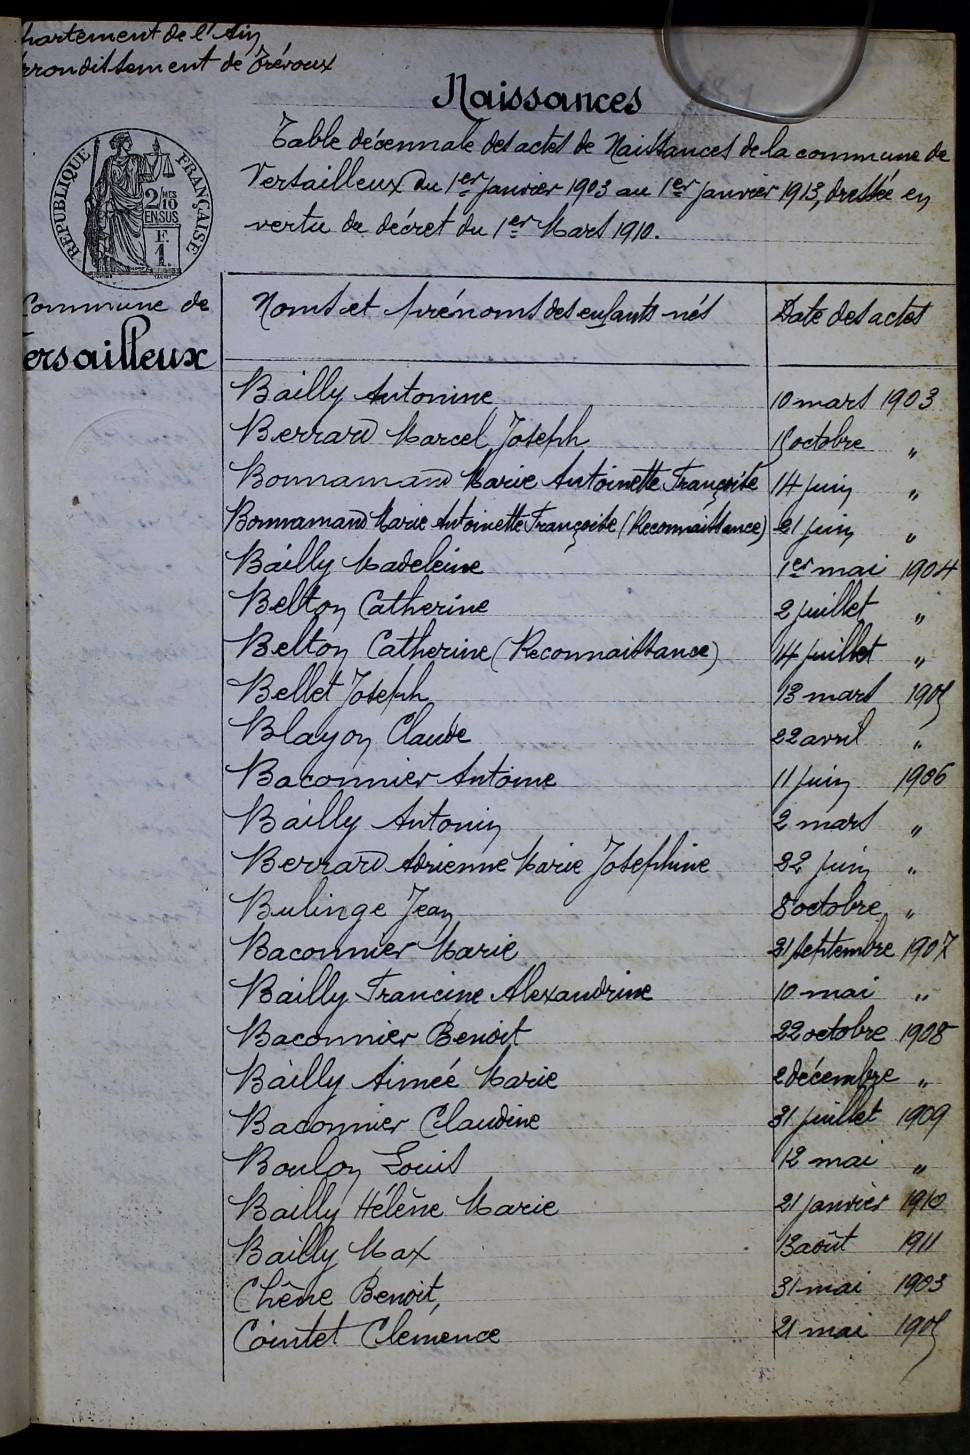 partement de l'Ain
rrondissement de Trévoux
Naissances
Table décennale des actes de Naissances de la commune de
Versailleux du 1er Janvier 1903 au 1er Janvier 1913, dressée en
vertu de décret du 1er Mars 1910.
RÉPUBLIQUE FRANÇAISE
2 MES
2/10
EN SUS
F.
1.
Commune de
ersailleux
Noms et prénoms des enfants nés Date des actes
Bailly Antonine 10 mars 1903
Berrard Marcel Joseph octobre "
Bonnamand Marie Antoinette Françoise 14 juin "
Bonnamand Marie Antoinette Françoise (Reconnaissance) 21 juin "
Bailly Madeleine 1er mai 1904
Belton Catherine 2 juillet "
Belton Catherine (Reconnaissance) 14 juillet "
Bellet Joseph 13 mars 1905
Blayon Claude 22 avril "
Baconnier Antoine 11 juin 1906
Bailly Antonin 2 mars "
Berrard Adrienne Marie Joséphine 22 juin "
Bulinge Jean 8 octobre "
Baconnier Marie 31 septembre 1907
Bailly Francine Alexandrine 10 mai "
Baconnier Benoit 22 octobre 1908
Bailly Aimée Marie 2 décembre "
Baconnier Claudine 31 juillet 1909
Boulon Louis 12 mai "
Bailly Hélène Marie 21 janvier 1910
Bailly Max 13 août 1911
Chêne Benoit, 31 mai 1903
Cointet Clémence 21 mai 1905